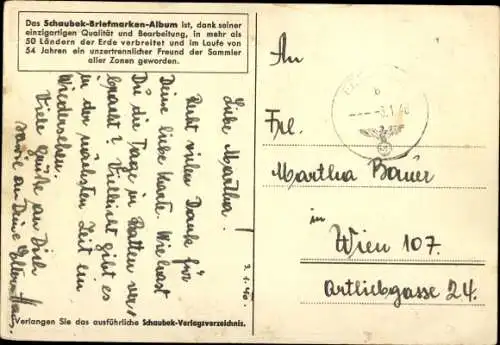 Das Schaubek-Briefmarken-Album ist, dank seiner
einzigartigen Qualität und Bearbeitung, in mehr als
50 Ländern der Erde verbreitet und im Laufe von
54 Jahren ein unzertrennlicher Freund der Sammler
aller Zonen geworden.
2.1.40.
Liebe Martha!
Recht vielen Dank für
Deine liebe Karte. Wie hast
Du die Tage in Ratten ver
bracht? Vielleicht gibt es
in der nächsten Zeit ein
Wiedersehen.
Viele Grüße an Dich
sowie an Deine Eltern
Hans.
Verlangen Sie das ausführliche Schaubek-Verlagsverzeichnis.
b
-3.1.40
An
Frl.
Martha Bauer
in
Wien 107.
Artliebgasse 24.